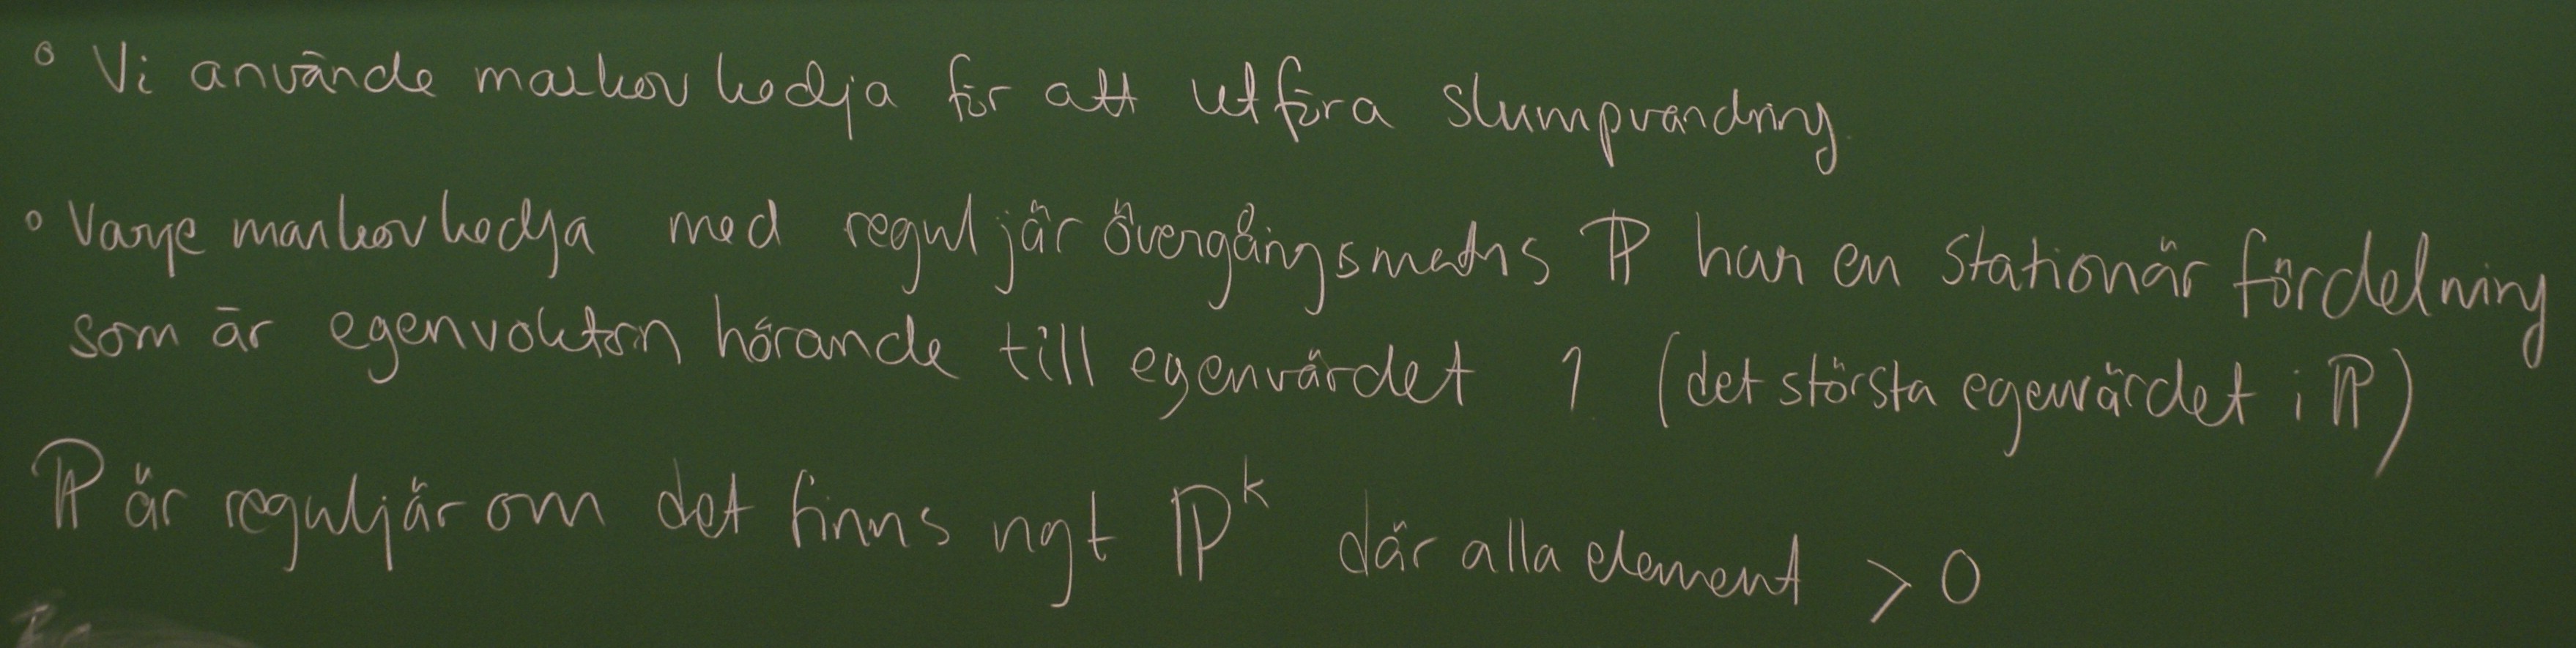 ° Vi använde markov kedja för att utföra slumpvandring
° Varje markov kedja med reguljär övergångsmatris ℙ har en stationär fördelning
som är egenvektorn hörande till egenvärdet 1 (det största egenvärdet i ℙ)
ℙ är reguljär om det finns ngt ℙ^k där alla element > 0